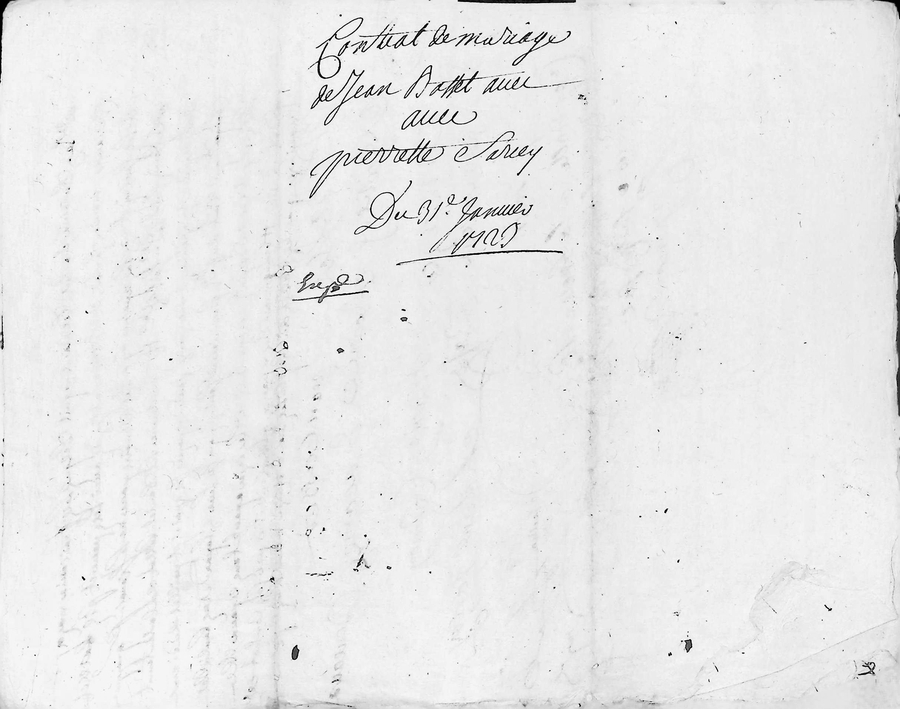 Contrat de mariage
de Jean Bosset avec
avec
pierrette Sarcey
Du 31e Janvier
1729
Expd